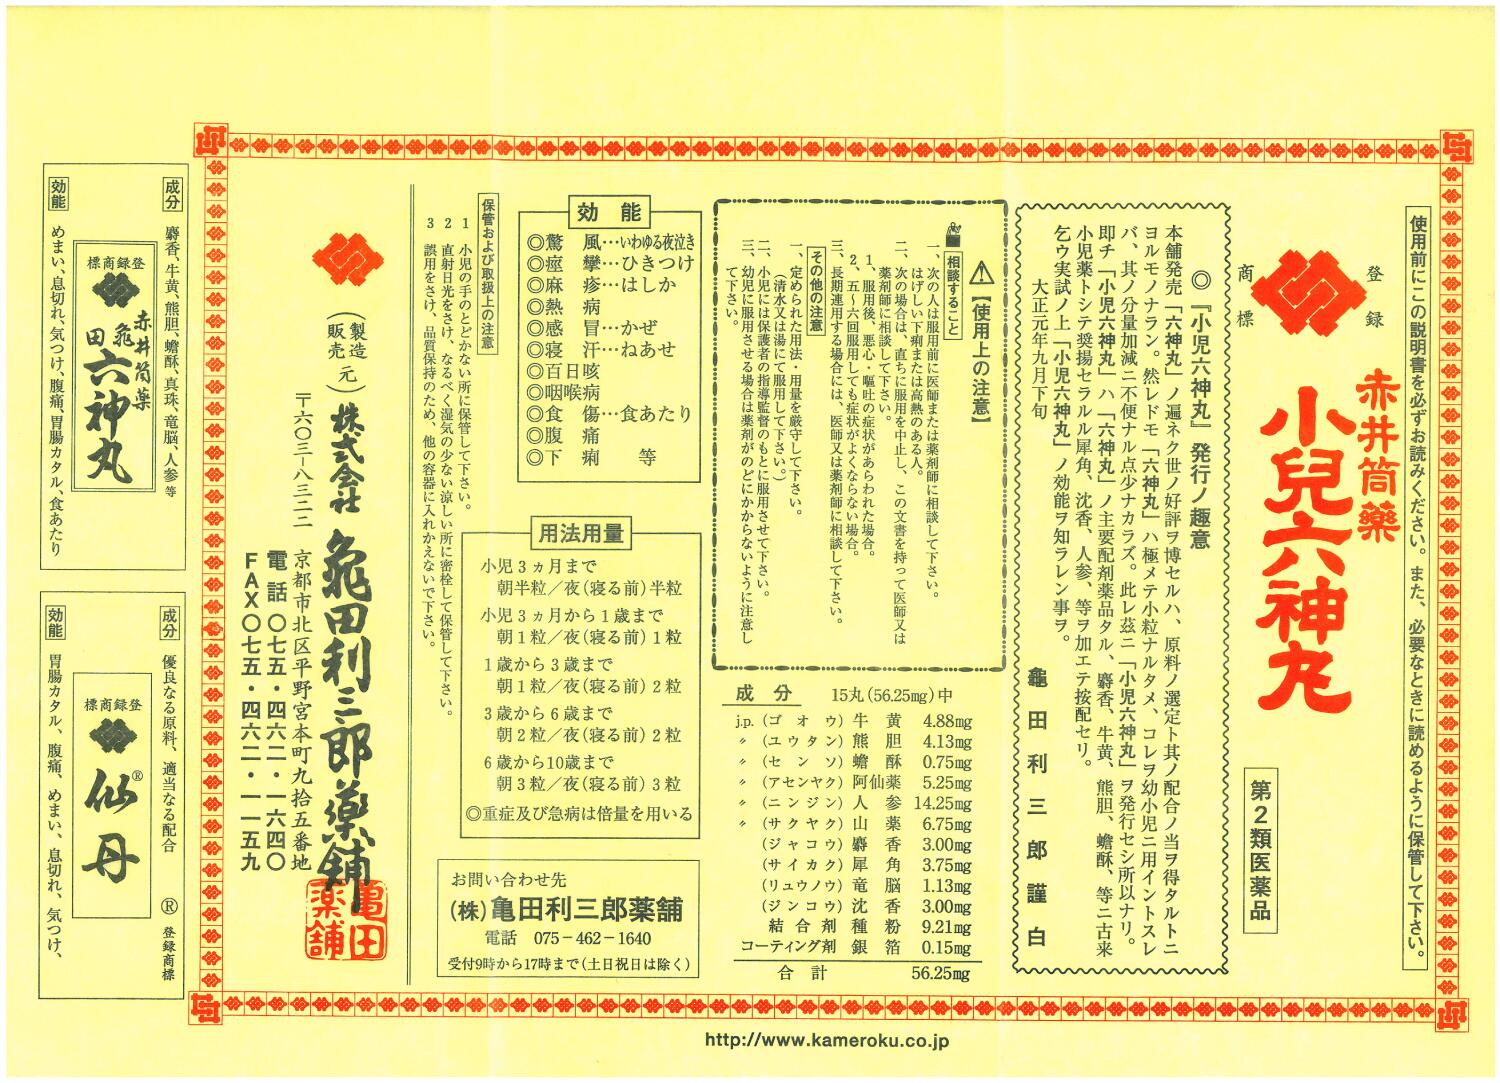 使用前にこの説明書を必ずお読みください。また、必要なときに読めるように保管して下さい。
登録
商標
赤井筒薬
小兒六神丸
第2類医薬品
◎『小児六神丸』発行ノ趣意
本舗発売「六神丸」ノ遍ネク世ノ好評ヲ博セルハ、原料ノ選定ト其ノ配合ノ当ヲ得タルトニ
ヨルモノナラン。然レドモ「六神丸」ハ極メテ小粒ナルタメ、コレヲ幼小児ニ用イントスレ
バ、其ノ分量加減ニ不便ナル点少ナカラズ。此レ茲ニ「小児六神丸」ヲ発行セシ所以ナリ。
即チ「小児六神丸」ハ「六神丸」ノ主要配剤薬品タル、麝香、牛黄、熊胆、蟾酥、等ニ古来
小児薬トシテ奨揚セラルル犀角、沈香、人参、等ヲ加エテ按配セリ。
乞ウ実試ノ上「小児六神丸」ノ効能ヲ知ラレン事ヲ。
大正元年九月下旬
龜田利三郎謹白
⚠【使用上の注意】
相談すること
一、次の人は服用前に医師または薬剤師に相談して下さい。
はげしい下痢または高熱のある人。
二、次の場合は、直ちに服用を中止し、この文書を持って医師又は
薬剤師に相談して下さい。
1、服用後、悪心・嘔吐の症状があらわれた場合。
2、五〜六回服用しても症状がよくならない場合。
三、長期連用する場合には、医師又は薬剤師に相談して下さい。
その他の注意
一、定められた用法・用量を厳守して下さい。
(清水又は湯にて服用して下さい。)
二、小児には保護者の指導監督のもとに服用させて下さい。
三、幼児に服用させる場合は薬剤がのどにかからないように注意し
て下さい。
成分 15丸(56.25mg)中
j.p.(ゴオウ)牛黄 4.88mg
〃(ユウタン)熊胆 4.13mg
〃(センソ)蟾酥 0.75mg
〃(アセンヤク)阿仙薬 5.25mg
〃(ニンジン)人参 14.25mg
〃(サクヤク)山薬 6.75mg
(ジャコウ)麝香 3.00mg
(サイカク)犀角 3.75mg
(リュウノウ)竜脳 1.13mg
(ジンコウ)沈香 3.00mg
結合剤 種粉 9.21mg
コーティング剤 銀箔 0.15mg
合計 56.25mg
効能
◎驚風…いわゆる夜泣き
◎痙攣…ひきつけ
◎麻疹…はしか
◎熱病
◎感冒…かぜ
◎寝汗…ねあせ
◎百日咳
◎咽喉病
◎食傷…食あたり
◎腹痛
◎下痢 等
用法用量
小児3ヵ月まで
朝半粒/夜(寝る前)半粒
小児3ヵ月から1歳まで
朝1粒/夜(寝る前)1粒
1歳から3歳まで
朝1粒/夜(寝る前)2粒
3歳から6歳まで
朝2粒/夜(寝る前)2粒
6歳から10歳まで
朝3粒/夜(寝る前)3粒
◎重症及び急病は倍量を用いる
お問い合わせ先
(株)亀田利三郎薬舗
電話 075-462-1640
受付9時から17時まで(土日祝日は除く)
保管および取扱上の注意
1 小児の手のとどかない所に保管して下さい。
2 直射日光をさけ、なるべく湿気の少ない涼しい所に密栓して保管して下さい。
3 誤用をさけ、品質保持のため、他の容器に入れかえないで下さい。
(製造販売元)株式会社 亀田利三郎薬舗
〒六〇三-八三二二
京都市北区平野宮本町九拾五番地
電話〇七五・四六二・一六四〇
FAX〇七五・四六二・一一五九
亀田薬舗
成分
麝香、牛黄、熊胆、蟾酥、真珠、竜脳、人参等
登録商標
赤井筒薬
亀田
六神丸
効能
めまい、息切れ、気つけ、腹痛、胃腸カタル、食あたり
成分
優良なる原料、適当なる配合
® 登録商標
登録商標
仙丹®
効能
胃腸カタル、腹痛、めまい、息切れ、気つけ、
http://www.kameroku.co.jp